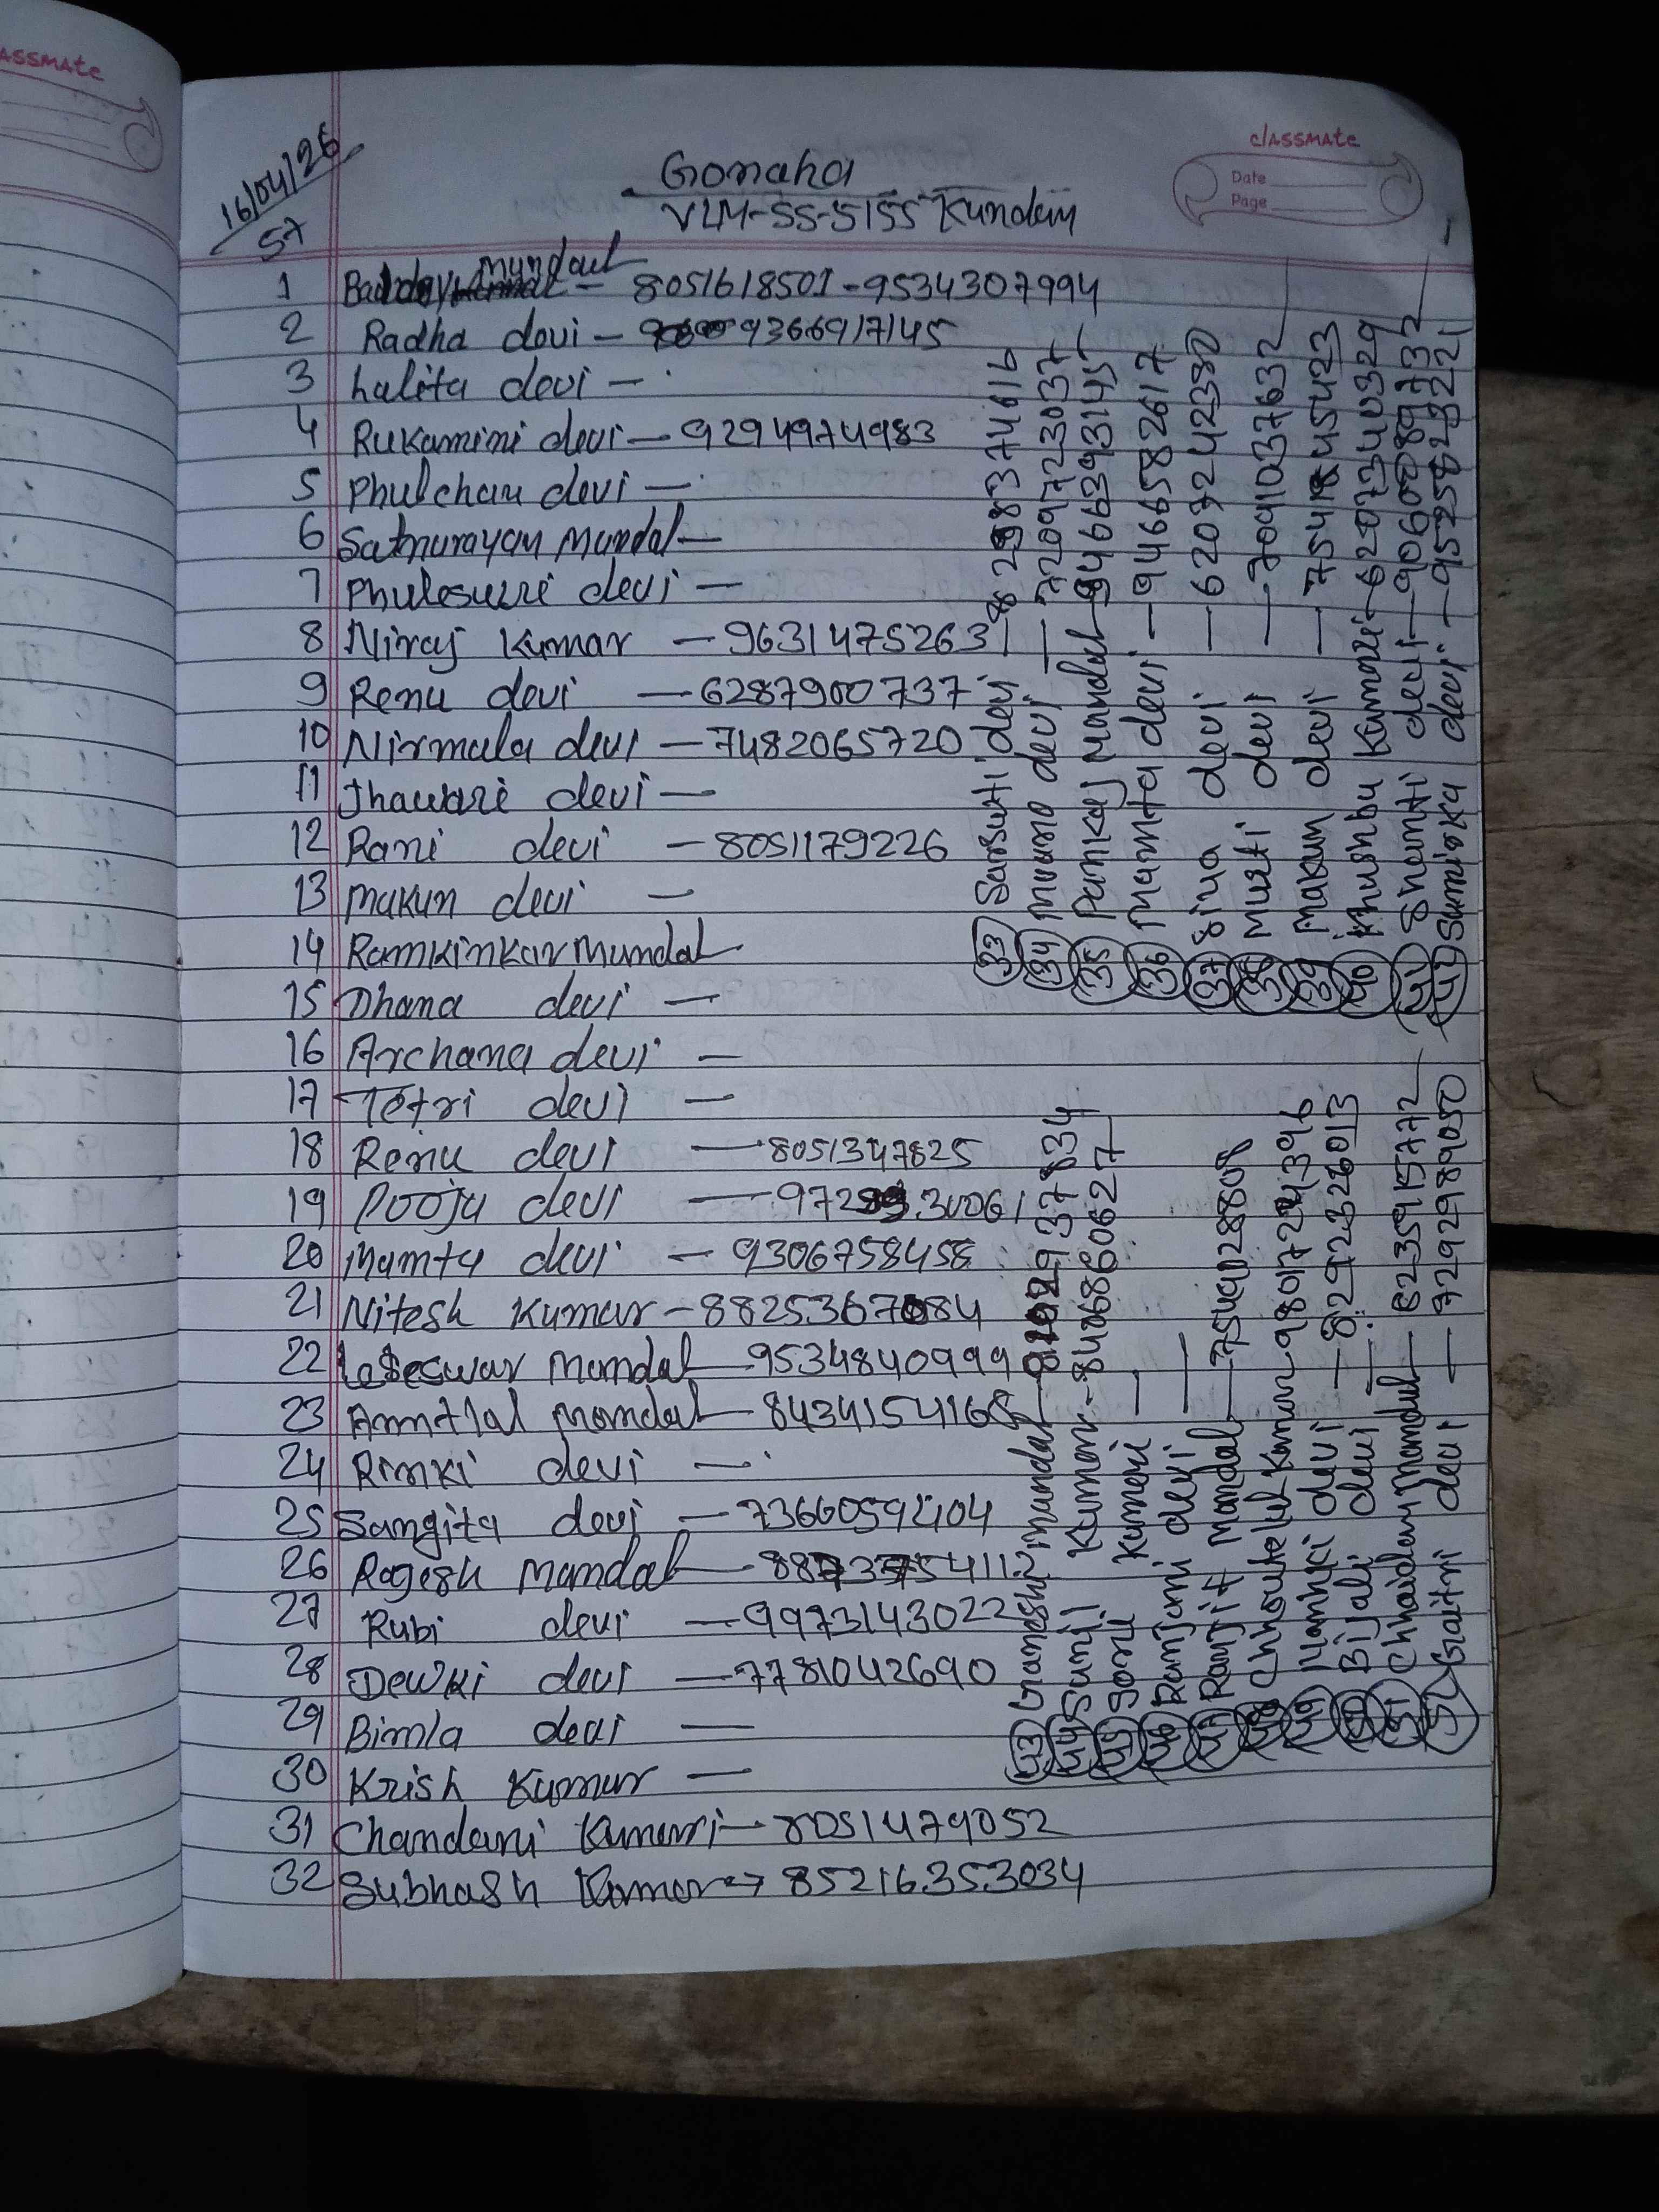 classmate
classmate
Date
Page
16/04/26
57
Gonaha
VLM-SS-5155 Kundan
1 Baldev mundal - 8051618501-9534307994
2 Radha devi - 9366917145
3 Lalita devi -
4 Rukamini devi - 9294974983
5 Phulchan devi -
6 Satnarayan Mandal -
7 Phuleswri devi -
8 Niraj Kumar - 9631475263
9 Renu devi - 6287900737
10 Nirmala devi - 7482065720
11 devi -
12 Rani devi - 8051179226
13 Makun devi -
14 Ramkinkar Mundal
15 Dhana devi -
16 Archana devi -
17 Tetri devi -
18 Renu devi - 8051347825
19 Pooja devi -
20 Mamta devi - 9306758458
21 Nitesh Kumar - 8825367084
22 Mandal - 9534840999
23 Amrtlal Mondal - 8434154168
24 Rinki devi -
25 Sangita devi - 7366059404
26 Rogesh Mandal -
27 Rubi devi - 9973143022
28 Dewki devi - 7781042690
29 Bimla devi -
30 Krish Kumar -
31 Chandani Kumari - 8051479052
32 Subhash Kumar - 8521635034
33 Sarsuti devi -
34 Muuna devi - 7209723037
35 Pankaj Mandal - 9466393145
36 Mamta devi - 9466582617
37 Siya devi - 6207242380
38 Musti devi - 7091037632
39 Makun devi -
40 Khushbu Kumari - 6207340329
41 Shamti devi - 9060089732
42 Sumitra devi - 9525823221
43 Mandal -
44 Sunil Kumar - 8406860627
45 Soni Kumari -
46 Ranjani devi -
47 Ranjit Mandal - 7549028808
48 Chhoutelal Kumar - 9801724396
49 Manki devi - 8292326013
50 Bijali devi -
51 Mandal - 6235915772
52 Gaitri devi - 7292989050